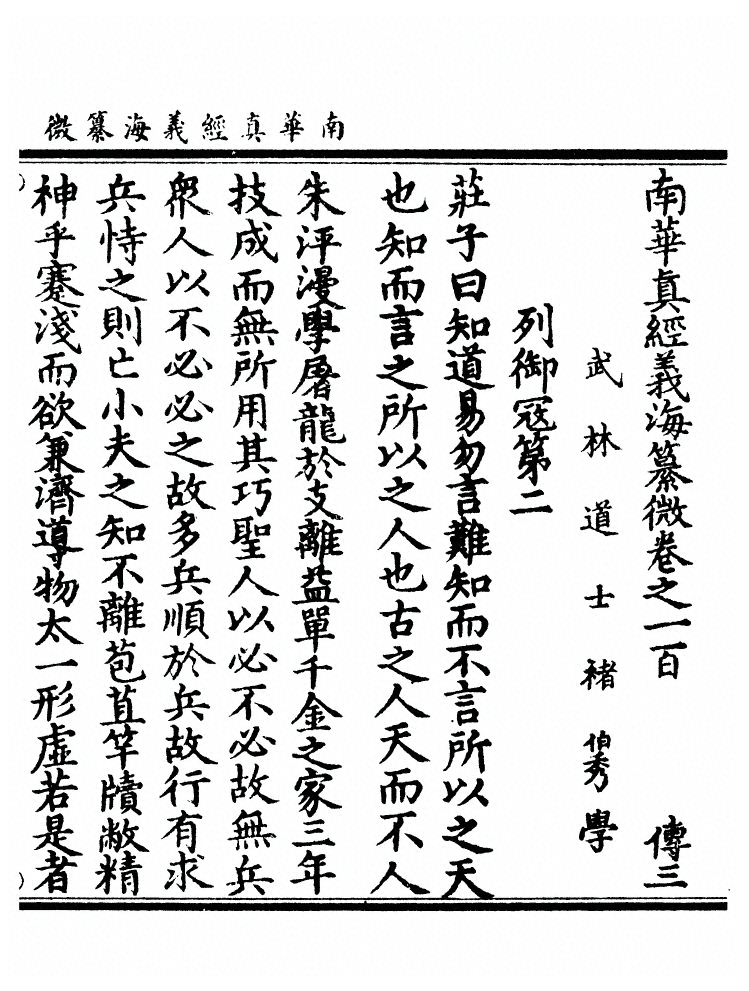 南華真經義海纂微
南華真經義海纂微卷之一百 傳三
武林道士褚伯秀學
列御冦第二
莊子曰知道易勿言難知而不言所以之天
也知而言之所以之人也古之人天而不人
朱泙漫學屠龍於支離益單千金之家三年
技成而無所用其巧聖人以必不必故無兵
衆人以不必必之故多兵順於兵故行有求
兵恃之則亡小夫之知不離苞苴竿牘敝精
神乎蹇淺而欲兼濟導物太一形虛若是者